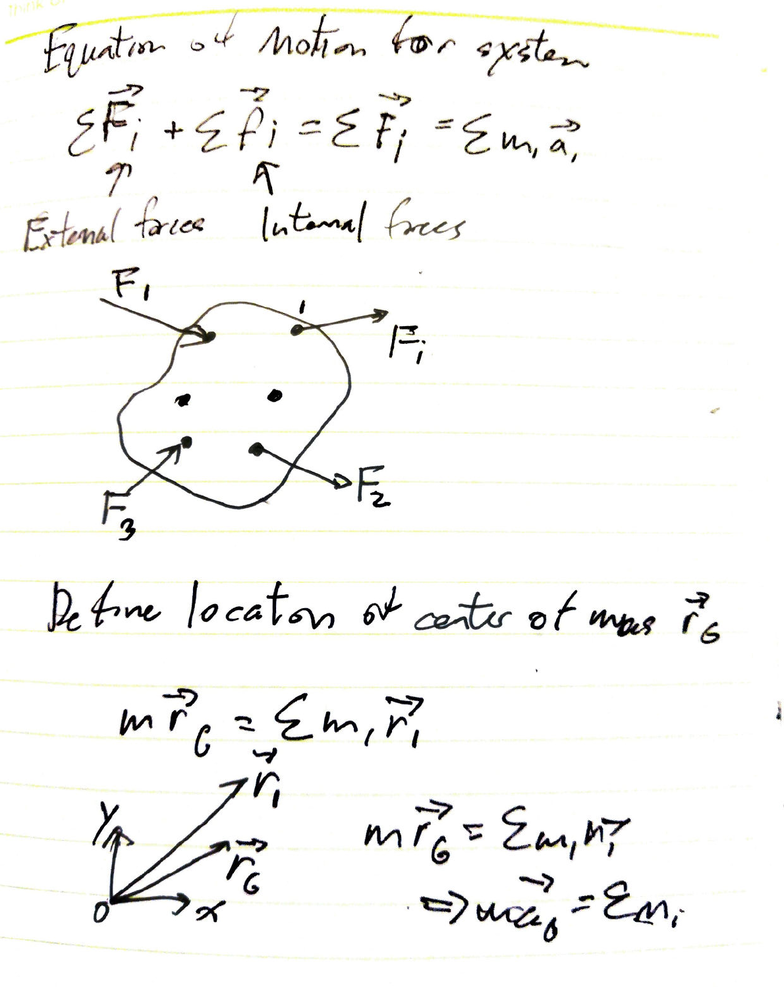 Equation of Motion for system
Σ F⃗i + Σ f⃗i = Σ F⃗i = Σ mi a⃗i
External forces Internal forces
F1
i
F⃗i
F2
F3
Define location of center of mass r⃗G
m r⃗G = Σ mi r⃗i
r⃗i
y
r⃗G
m r⃗G = Σ mi r⃗i
0 x
⇒ m a⃗G = Σ mi